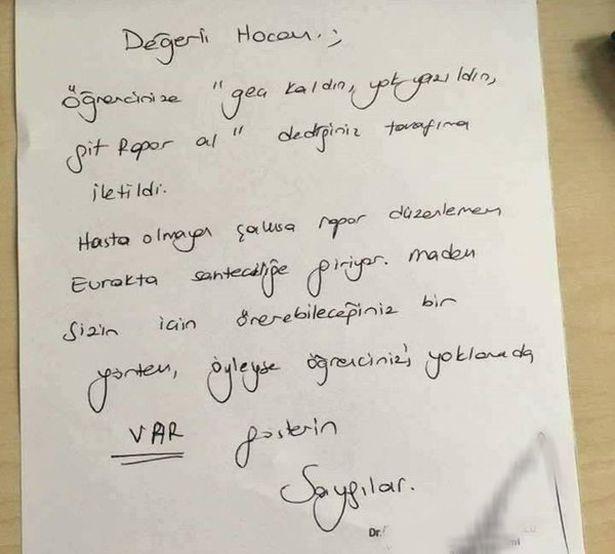 Değerli Hocam :)
Öğrencinize "geç kaldın, yok yazıldın,
git Rapor al" dediğiniz tarafıma
iletildi.
Hasta olmayan şahısa rapor düzenlemem
Evrakta sahteciliğe giriyor. madem
Sizin için önerebileceğiniz bir
yöntem, öyleyse öğrencinizi yoklamada
VAR gösterin
Saygılar.
Dr.